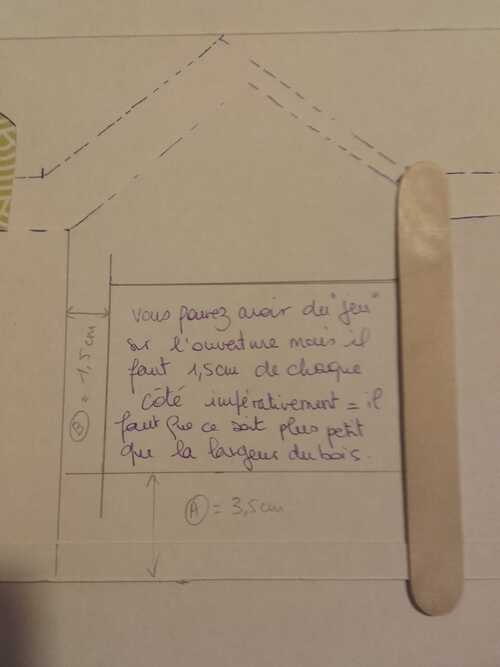 vous pouvez avoir du "jeu"
sur l'ouverture mais il
faut 1,5cm de chaque
côté impérativement = il
faut que ce soit plus petit
que la largeur du bois.
B = 1,5cm
A = 3,5cm